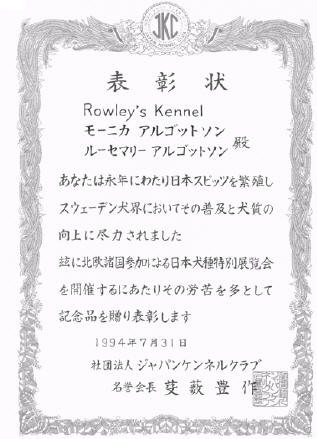 JKC
表彰状
Rowley's Kennel
モーニカ アルゴットソン
ルーセマリー アルゴットソン 殿
あなたは永年にわたり日本スピッツを繁殖し
スウェーデン犬界においてその普及と犬質の
向上に尽力されました
玆に北欧諸国参加による日本犬種特別展覧会
を開催するにあたりその労苦を多として
記念品を贈り表彰します
1994年7月31日
社団法人 ジャパンケンネルクラブ
名誉会長 芰藪豊作